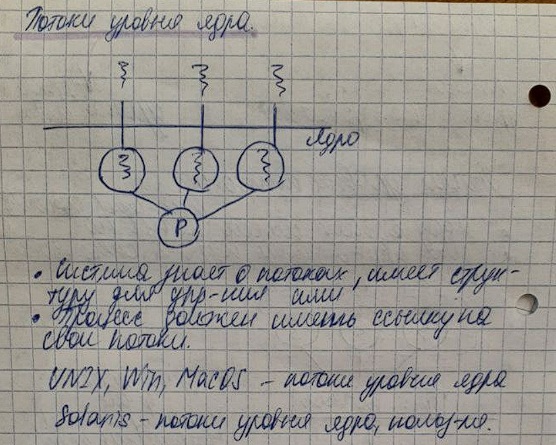 Потоки уровня ядра.
Ядро
P
• Система знает о потоках, имеет струк-
туру для упр-ния ими
• Процесс должен иметь ссылку на
свои потоки.
UNIX, Win, MacOS - потоки уровня ядра
Solaris - потоки уровня ядра, польз-ля.